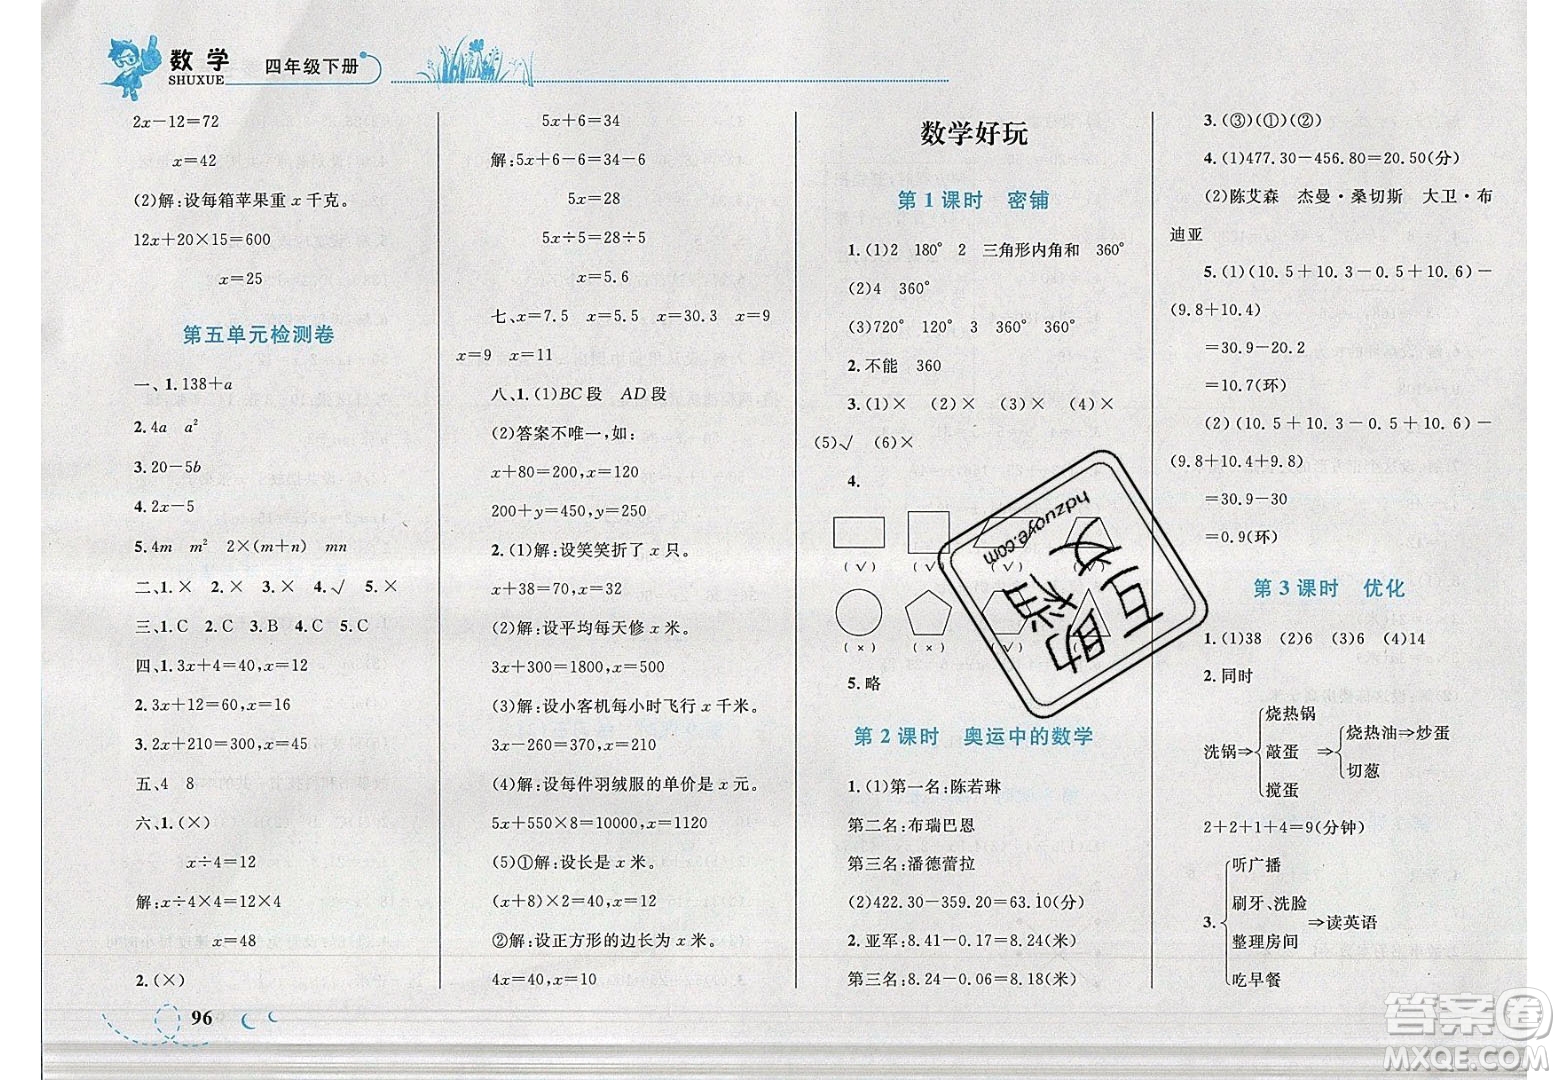 数学
SHUXUE
四年级下册
2x-12=72
x=42
(2)解:设每箱苹果重 x 千克。
12x+20×15=600
x=25
第五单元检测卷
一、1.138+a
2.4a a²
3.20-5b
4.2x-5
5.4m m² 2×(m+n) mn
二、1.× 2.× 3.× 4.√ 5.×
三、1.C 2.C 3.B 4.C 5.C
四、1.3x+4=40,x=12
2.3x+12=60,x=16
3.2x-12=78,x=45
五、4 8
六、1.(×)
x÷4=12
解:x÷4×4=12×4
x=48
2.(×)
5x+6=34
解:5x+6-6=34-6
5x=28
5x÷5=28÷5
x=5.6
七、x=7.5 x=5.5 x=30.3 x=9
x=9 x=11
八、1.(1)BC 段 AD 段
(2)答案不唯一,如:
x+80=200,x=120
200+y=450,y=250
2.(1)解:设笑笑折了 x 只。
x+38=70,x=32
(2)解:设平均每天修 x 米。
3x+300=1800,x=500
(3)解:设小客机每小时飞行 x 千米。
3x-260=370,x=210
(4)解:设每件羽绒服的单价是 x 元。
5x+550×8=10000,x=1120
(5)①解:设长是 x 米。
(x+8)×2=40,x=12
②解:设正方形的边长为 x 米。
4x=40,x=10
数学好玩
第 1 课时 密铺
1.(1)2 180° 2 三角形内角和 360°
(2)4 360°
(3)720° 120° 3 360° 360°
2.不能 360
3.(1)× (2)× (3)× (4)×
(5)√ (6)×
4.
(√) (√) (√) (√)
(×) (×) (√) (√)
5.略
第 2 课时 奥运中的数学
1.(1)第一名:陈若琳
第二名:布瑞巴恩
第三名:潘德蕾拉
(2)422.30-359.20=63.10(分)
2.亚军:8.41-0.17=8.24(米)
第三名:8.24-0.06=8.18(米)
3.(③)(①)(②)
4.(1)477.30-456.80=20.50(分)
(2)陈艾森 杰曼·桑切斯 大卫·布
迪亚
5.(1)(10.5+10.3-0.5+10.6)-
(9.8+10.4)
=30.9-20.2
=10.7(环)
(2)(10.5+10.3-0.5+10.6)-
(9.8+10.4+9.8)
=30.9-30
=0.9(环)
第 3 课时 优化
1.(1)38 (2)6 (3)6 (4)14
2.同时
洗锅⇒
烧热锅
敲蛋
搅蛋
⇒
烧热油⇒炒蛋
切葱
2+2+1+4=9(分钟)
3.
听广播
刷牙、洗脸
整理房间
吃早餐
⇒读英语
96
互助作业
hdzuoye.com
答案圈
MXQE.COM